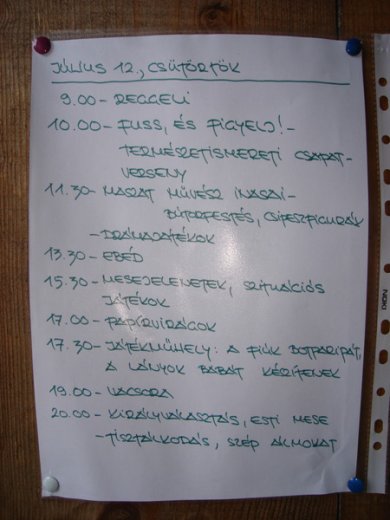 JÚLIUS 12., CSÜTÖRTÖK
9.00 - REGGELI
10.00 - FUSS, ÉS FIGYELJ! -
TERMÉSZETISMERETI CSAPAT-
VERSENY
11.30 - MASZAT MŰVÉSZ INASAI -
BÚTORFESTÉS, CSIPESZFIGURÁK
- DRÁMAJÁTÉKOK
13.30 - EBÉD
15.30 - MESEJELENETEK, SZITUÁCIÓS
JÁTÉKOK
17.00 - PAPÍRVIRÁGOK
17.30 - JÁTÉKMŰHELY: A FIÚK BOTPARIPÁT,
A LÁNYOK BABÁT KÉSZÍTENEK
19.00 - VACSORA
20.00 - KIRÁLYVÁLASZTÁS, ESTI MESE
- TISZTÁLKODÁS, SZÉP ÁLMOKAT